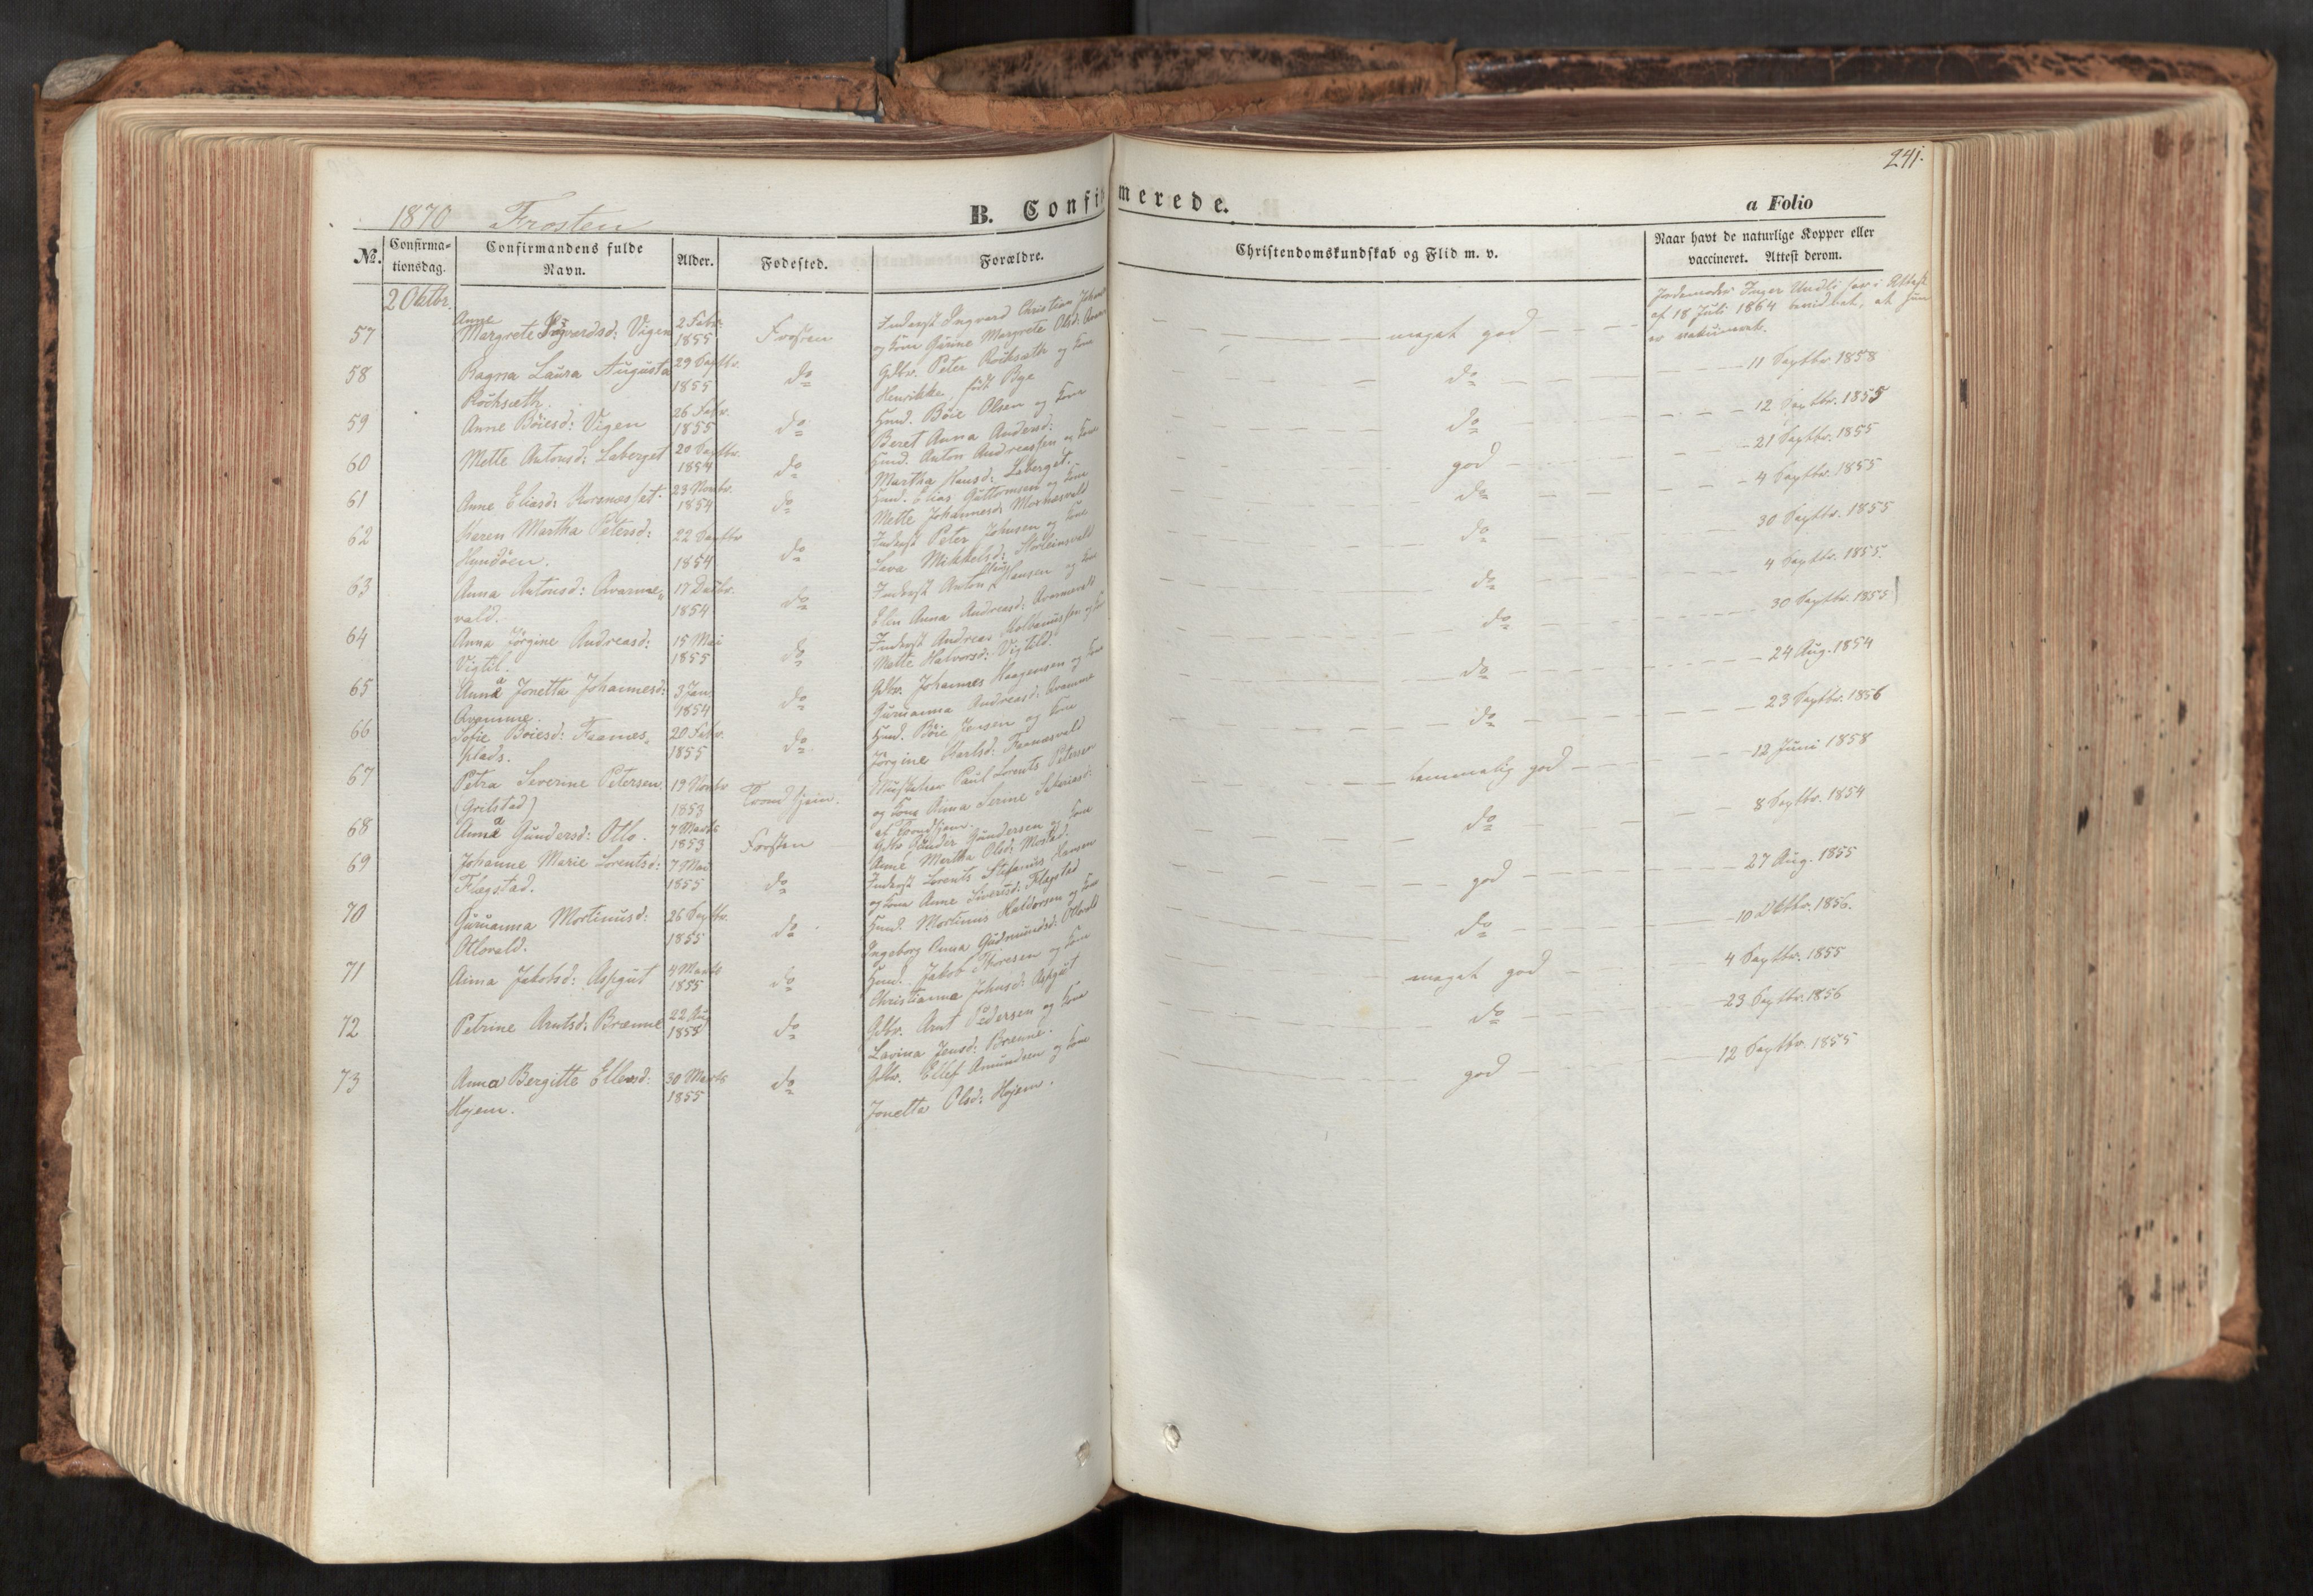 241.
1870 Frosten
B. Confirmerede.
a Folio
No.
Confirma-
tionsdag.
Confirmandens fulde
Navn.
Alder.
Fødested.
Forældre.
Christendomskundskab og Flid m. v.
Naar havt de naturlige Kopper eller
vaccineret. Attest derom.
2 Oktbr.
57
Anne
Margrete Ingverdsd: Vigen
2 Febr.
1855
Frosten
Inderst Ingverd Christian
og Kone Gurine Margrete Olsd:
meget god
Jordemoder Inger Undli har i Attest
af 18 Juli 1864 bevidnet, at hun
er vaccineret.
58
Ragna Laura Augusta
Rochsæth.
29 Septbr.
1855
do
Gdbr. Peter Rochsæth og Kone
Henrikke født Bye
do
11 Septbr 1858
59
Anne Böiesd: Vigen
26 Febr.
1855
do
Husmd. Böie Olsen og Kone
Beret Anna Andersd:
do
12 Septbr. 1855
60
Mette Antonsd: Laberget
20 Septbr.
1854
do
Husmd. Anton Andreassen og Kone
Martha Hansd: Laberget.
god
21 Septbr. 1855
61
Anne Eliasd:
23 Novbr.
1854
do
Husmd. Elias Guttormsen og Kone
Mette Johannesd:
do
4 Septbr. 1855
62
Karen Martha Petersd:
Hyndöen.
22 Septbr
1854
do
Inderst Peter Johnsen og Kone
Mikkelsd:
do
30 Septbr. 1855
63
Anna Antonsd: Qvamme-
vald.
17 Decbr.
1854
do
Inderst Anton Hansen og Kone
Elen Anna Andreasd: Qvamvald
do
4 Septbr. 1855.
64
Anna Jörgine Andreasd:
Vigtil.
15 Mai
1855
do
Inderst Andreas og Kone
Mette Halvorsd: Vigtild.
do
30 Septbr. 1855
65
Anna Jonetta Johannesd:
Qvamme.
3 Jan.
1854
do
Gdbr. Johannes Haagensen og Kone
Gurianna Andreasd: Qvamme
do
24 Aug. 1854
66
Sofie Böiesd: Faanes-
plads.
20 Febr.
1855
do
Husmd. Böie Jensen og Kone
Jörgine Faanesvald
do
23 Septbr. 1856
67
Petra Severine Petersen
(Grilstad)
19 Novbr
1853
Trondhjem.
Paul Lorents Petersen
og Kone Anna Serine
af Trondhjem.
temmelig god
12 Juni 1858
68
Anna Gundersd: Otlo.
7 Marts
1853
Frosten
Gdbr Gunder Gundersen og Kone
Anne Martha Olsd: Mostad.
do
8 Septbr. 1854
69
Johanne Marie Lorentsd:
Flægstad.
7 Mai
1855
do
Inderst Lorents Stefanus Hansen
og Kone Anne Siversd: Flægstad
god
27 Aug. 1855
70
Gurianna Mortinusd:
Otlovald.
26 Septbr.
1855
do
Husmd. Mortinus Haldorsen og Kone
Ingeborg Anna Gudmundsd: Otlovald
do
10 Oktbr. 1856.
71
Anna Jakobsd: Aspgut
4 Marts
1855
do
Husmd. Jakob Thoresen og Kone
Christianna Johnsd: Aspgut
meget god
4 Septbr. 1855
72
Petrine Arntsd: Brænne
22 Aug
1855
do
Gdbr. Arnt Pedersen og Kone
Lavina Jensd: Brænne.
do
23 Septbr. 1856
73
Anna Bergitte Ellevsd:
Hojem.
30 Marts
1855
do
Gdbr. Ellef Amundsen og Kone
Jonetta Olsd: Hojem.
god
12 Septbr. 1855